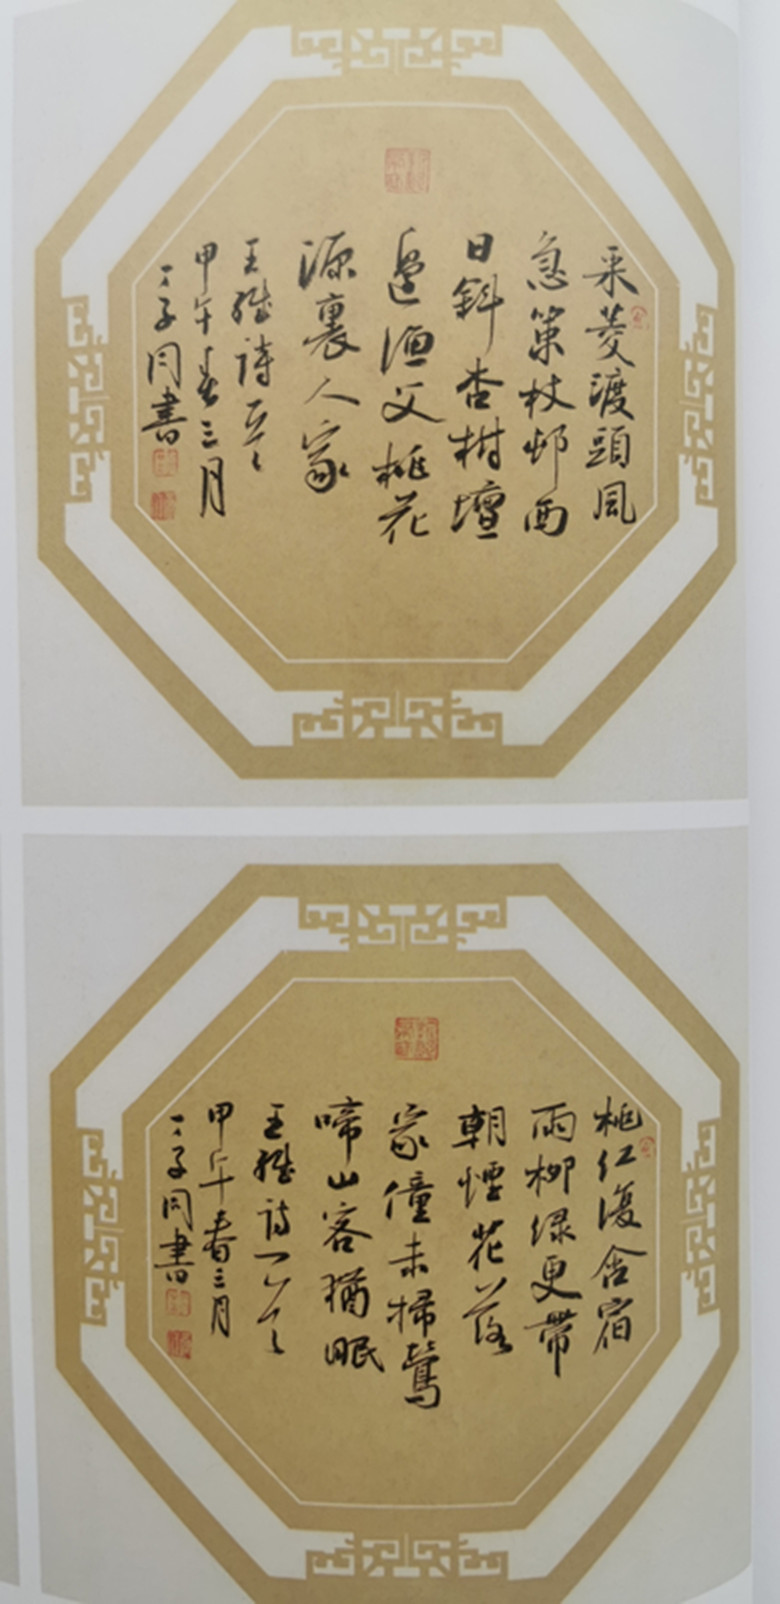 采菱渡頭風
急策杖邨西
日斜杏樹壇
邊漁父桃花
源裏人家
王維詩一首
甲午春三月
子同書
桃紅復含宿
雨柳綠更帶
朝煙花落
家僮未掃鶯
啼山客猶眠
王維詩一首
甲午春三月
子同書